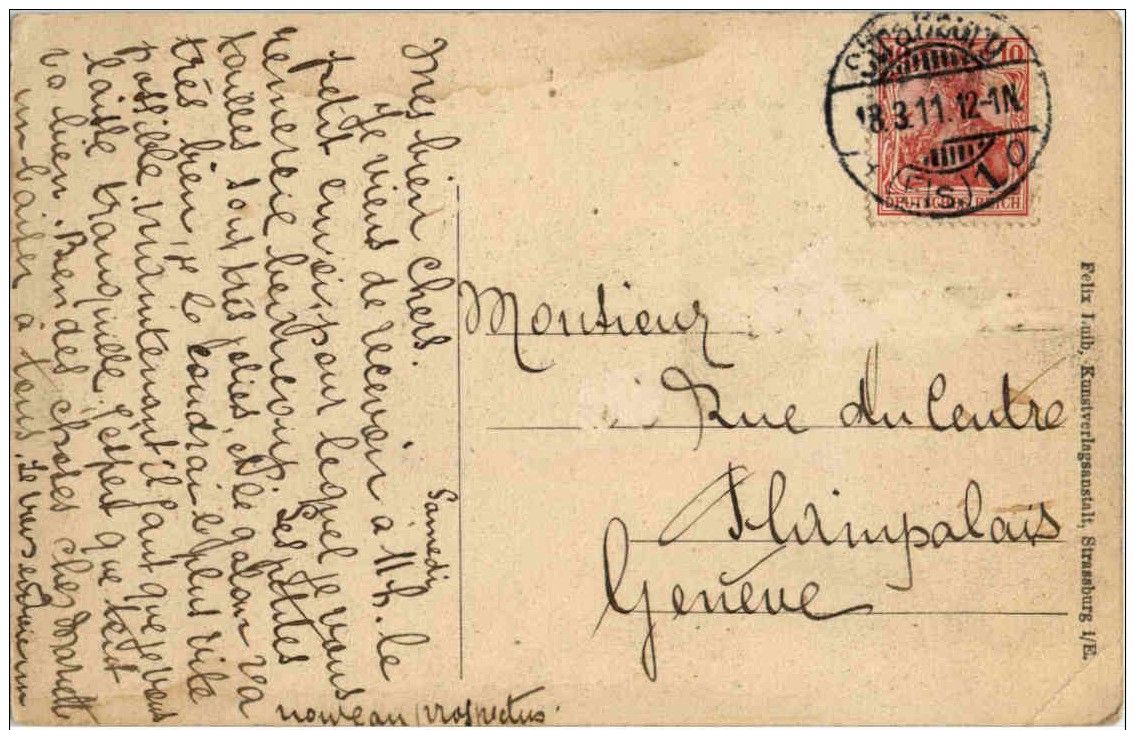 Samedi
Mes bien chers.
Je viens de recevoir à 11 h. le
petit envoi, pour lequel je vous
remercie beaucoup. Les petites
tailles sont très jolies, et le galon va
très bien, je le coudrai le plus vite
possible. Maintenant il faut que je vous
laisse tranquille. J'espère que c'est
bien. Bien des choses chez
à tous. Je vous enverrai un
nouveau prospectus.
Monsieur
Rue du Centre
Plainpalais
Genève
Strassburg
18.3.11. 12-1N.
(Els) 1 o
10 10
DEUTSCHES REICH
Felix Luib, Kunstverlagsanstalt, Strassburg i/E.